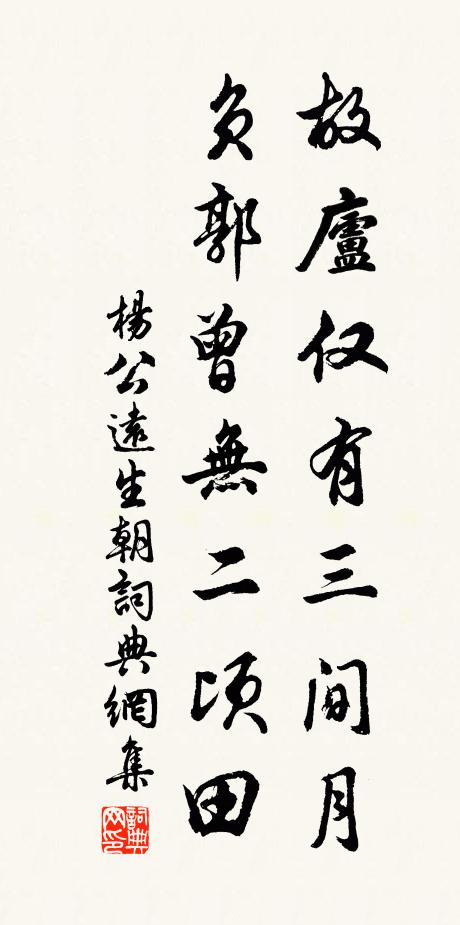 故廬仅有三间月
负郭曾無二顷田
楊公遠生朝詞典網集
詞典网印